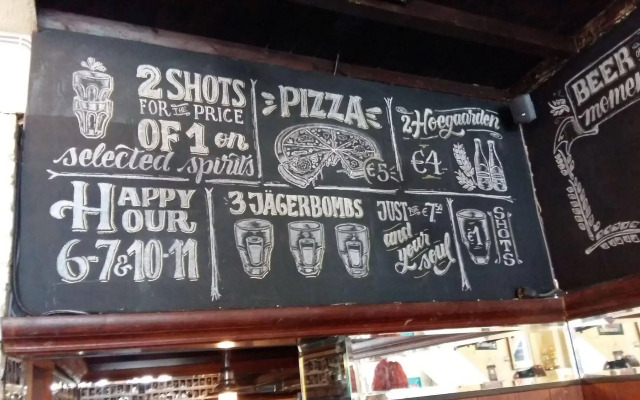 2 SHOTS
FOR THE PRICE
OF 1 on
selected spirits
PIZZA
€5
2 Hoegaarden
€4
HAPPY
HOUR
6-7 & 10-11
3 JÄGERBOMBS
JUST
€7.50
and
your
soul
€1
SHOTS
BEER